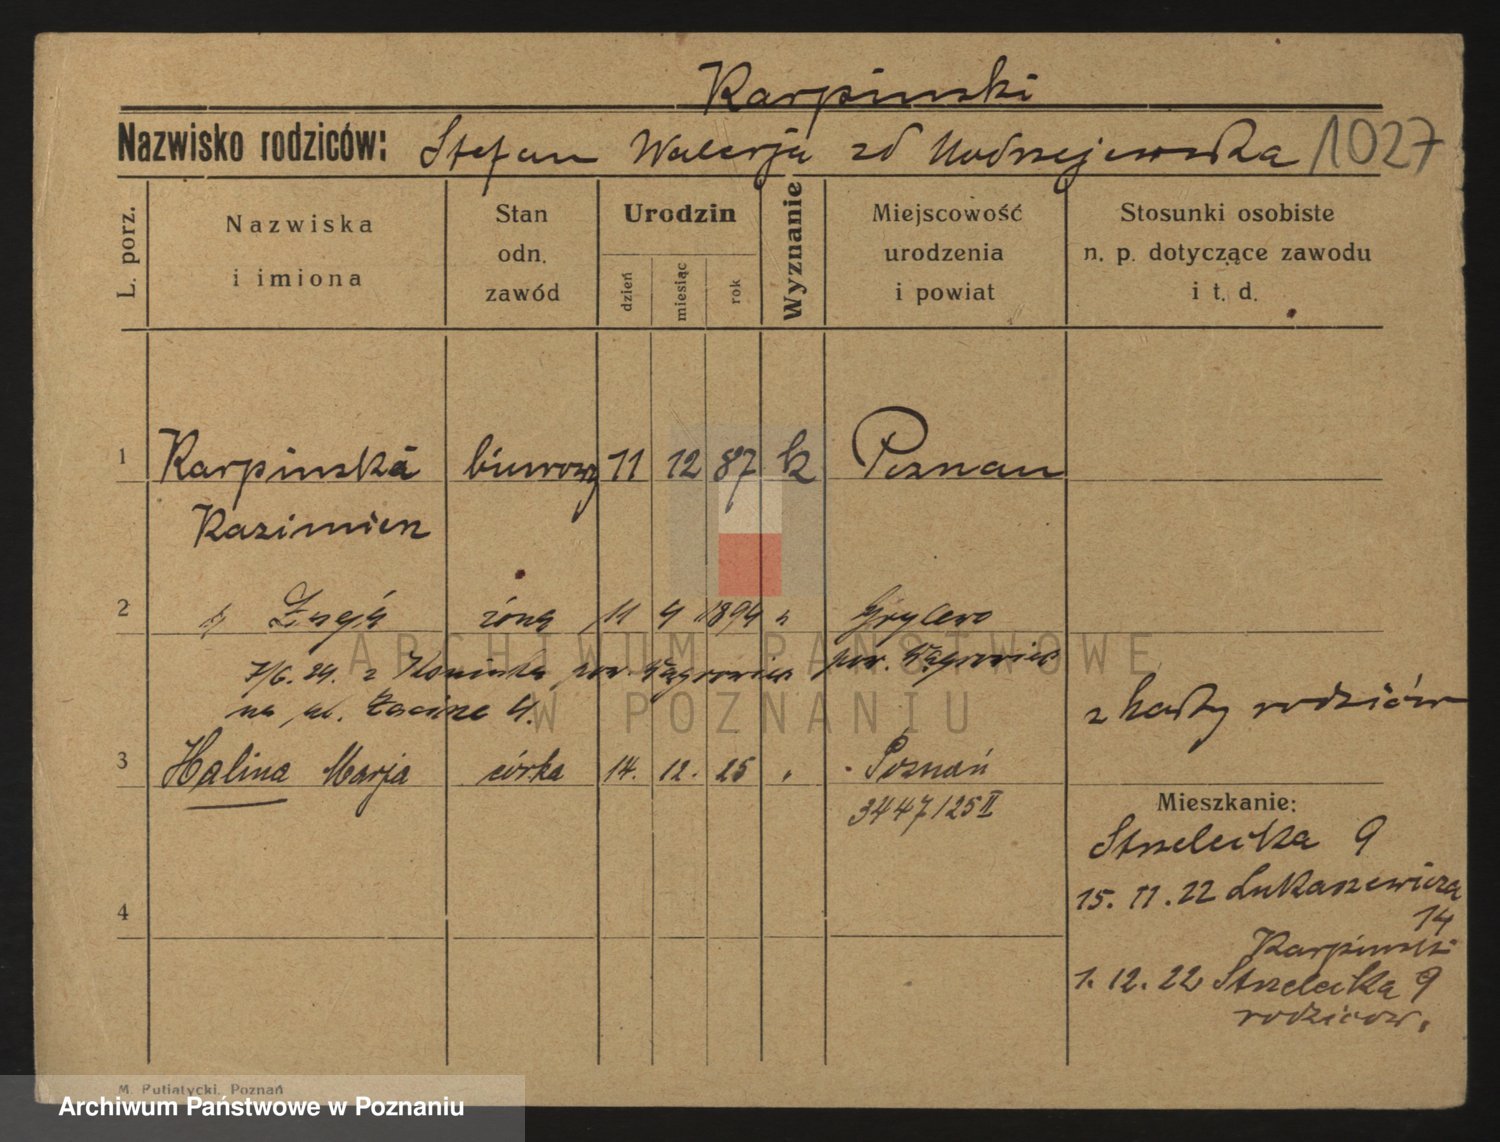 Karpinski
Nazwisko rodziców: Stefan Walerja zd Modrzejewska 1027
L. porz.
Nazwiska
i imiona
Stan
odn.
zawód
Urodzin
dzień
miesiąc
rok
Wyznanie
Miejscowość
urodzenia
i powiat
Stosunki osobiste
n. p. dotyczące zawodu
i t. d.
1 Karpinska biurowy 11 12 87 k Poznan
Kazimierz
2 żona 11 4 1894 " Grylewo
7/6. 24. z pow. Wągrowiec pow. Wągrowiec
na ul. 4.
z karty rodziców
3 Halina Marja córka 14. 12. 25 " Poznań
3447/25 II
Mieszkanie:
Strzelecka 9
15. 11. 22 Lukaszewicza
14
4
Karpinski
1. 12. 22 Strzelecka 9
rodziców.
M. Putiatycki, Poznań
ARCHIWUM PAŃSTWOWE
W POZNANIU
Archiwum Państwowe w Poznaniu